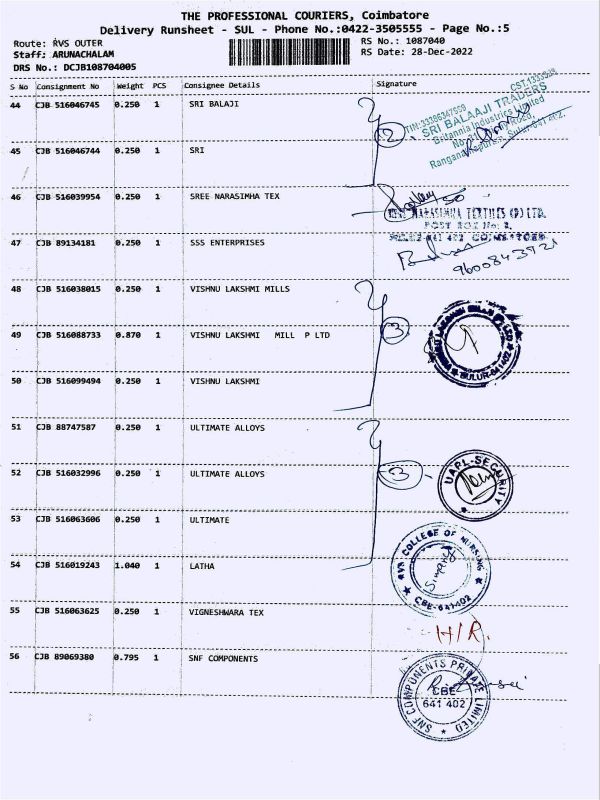 THE PROFESSIONAL COURIERS, Coimbatore
Delivery Runsheet - SUL - Phone No.:0422-3505555 - Page No.:5
Route: RVS OUTER
Staff: ARUNACHALAM
DRS No.: DCJB108704005
RS No.: 1087040
RS Date: 28-Dec-2022
S No Consignment No Weight PCS Consignee Details Signature
44 CJB 516046745 0.250 1 SRI BALAJI
2
SRI BALAAJI TRADERS
Britannia Industries Limited
45 CJB 516046744 0.250 1 SRI
46 CJB 516039954 0.250 1 SREE NARASIMHA TEX
NARASIMHA TEXTILES (P) LTD.
POST BOX No: 2,
47 CJB 89134181 0.250 1 SSS ENTERPRISES
9600843921
48 CJB 516038015 0.250 1 VISHNU LAKSHMI MILLS
49 CJB 516088733 0.870 1 VISHNU LAKSHMI MILL P LTD
3
SULUR-641402
50 CJB 516099494 0.250 1 VISHNU LAKSHMI
51 CJB 88747587 0.250 1 ULTIMATE ALLOYS
52 CJB 516032996 0.250 1 ULTIMATE ALLOYS
3
UAPL-SECURITY
53 CJB 516063606 0.250 1 ULTIMATE
54 CJB 516019243 1.040 1 LATHA
RVS COLLEGE OF NURSING
CBE-641402
55 CJB 516063625 0.250 1 VIGNESHWARA TEX
H/R.
56 CJB 89069380 0.795 1 SNF COMPONENTS
SNF COMPONENTS PRIVATE LIMITED
CBE
641 402